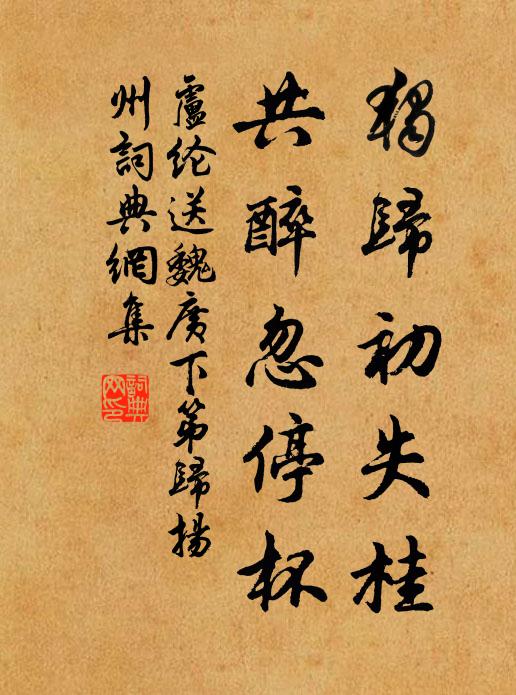 獨歸初失桂
共醉忽停杯
盧纶送魏广下第歸揚
州詞典網集
詞典
网印